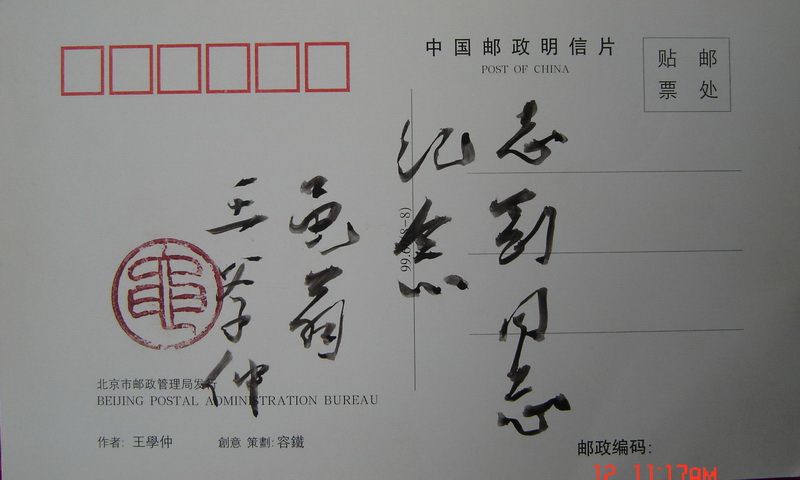 中国邮政明信片
POST OF CHINA
贴 邮
票 处
志刚同志
纪念
黾翁
王学仲
99.6(8-8)
北京市邮政管理局发行
BEIJING POSTAL ADMINISTRATION BUREAU
作者: 王學仲
創意 策劃: 容鐵
邮政编码:
12 11:17AM